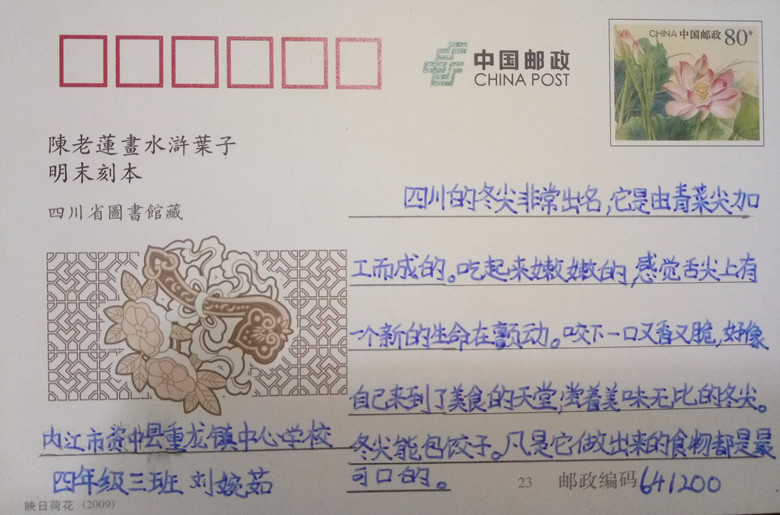 中国邮政
CHINA POST
CHINA 中国邮政 80分
陳老蓮畫水滸葉子
明末刻本
四川省圖書館藏
四川的冬尖非常出名,它是由青菜尖加
工而成的。吃起来嫩嫩的,感觉舌尖上有
一个新的生命在颤动。咬下一口又香又脆,好像
自己来到了美食的天堂,尝着美味无比的冬尖。
冬尖能包饺子。凡是它做出来的食物都是最
可口的。
内江市资中县重龙镇中心学校
四年级三班 刘婉茹
23 邮政编码641200
映日荷花 (2009)